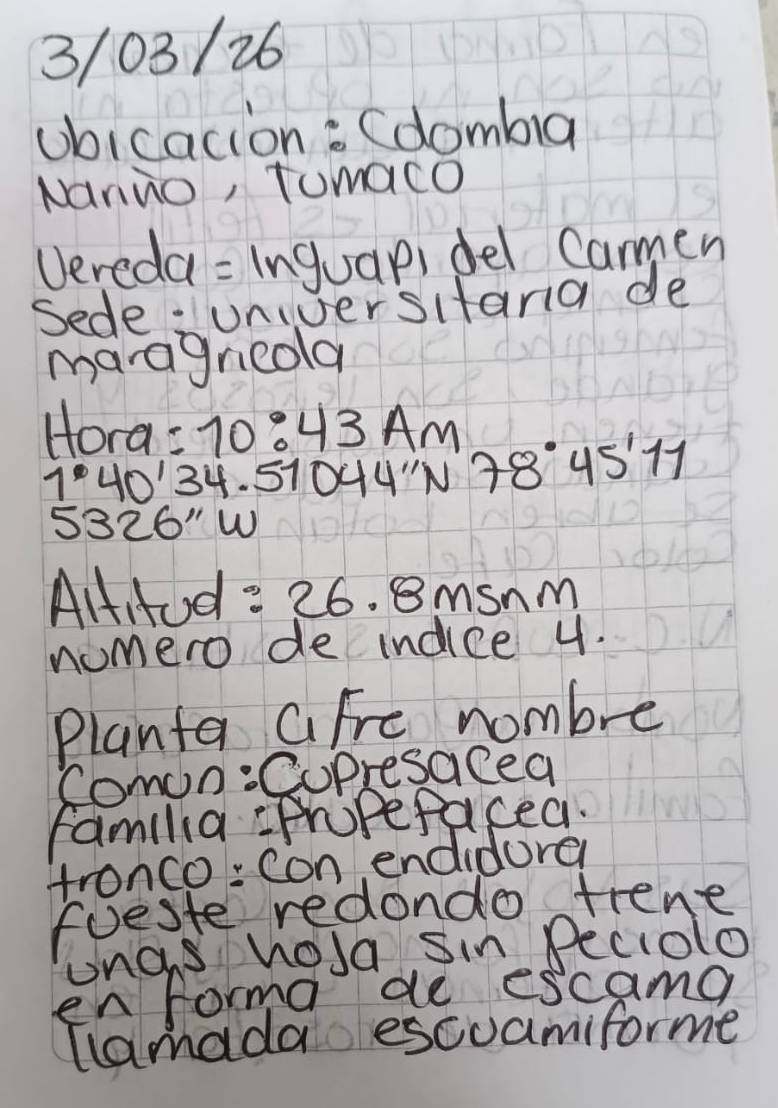 3/03/26
Ubicación: Colombia
Nariño, Tumaco
Vereda = Inguapi del Carmen
Sede: universitaria de
maragricola
Hora: 10:43 AM
1°40'34.51044"N 78°45'11
5326" W
Altitud: 26.8 msnm
numero de indice 4.
Planta cifre nombre
comun: Cupresacea
familia: Prupepacea.
tronco: con endidura
fueste redondo tiene
unas hoja sin peciolo
en forma de escama
llamada escuamiforme